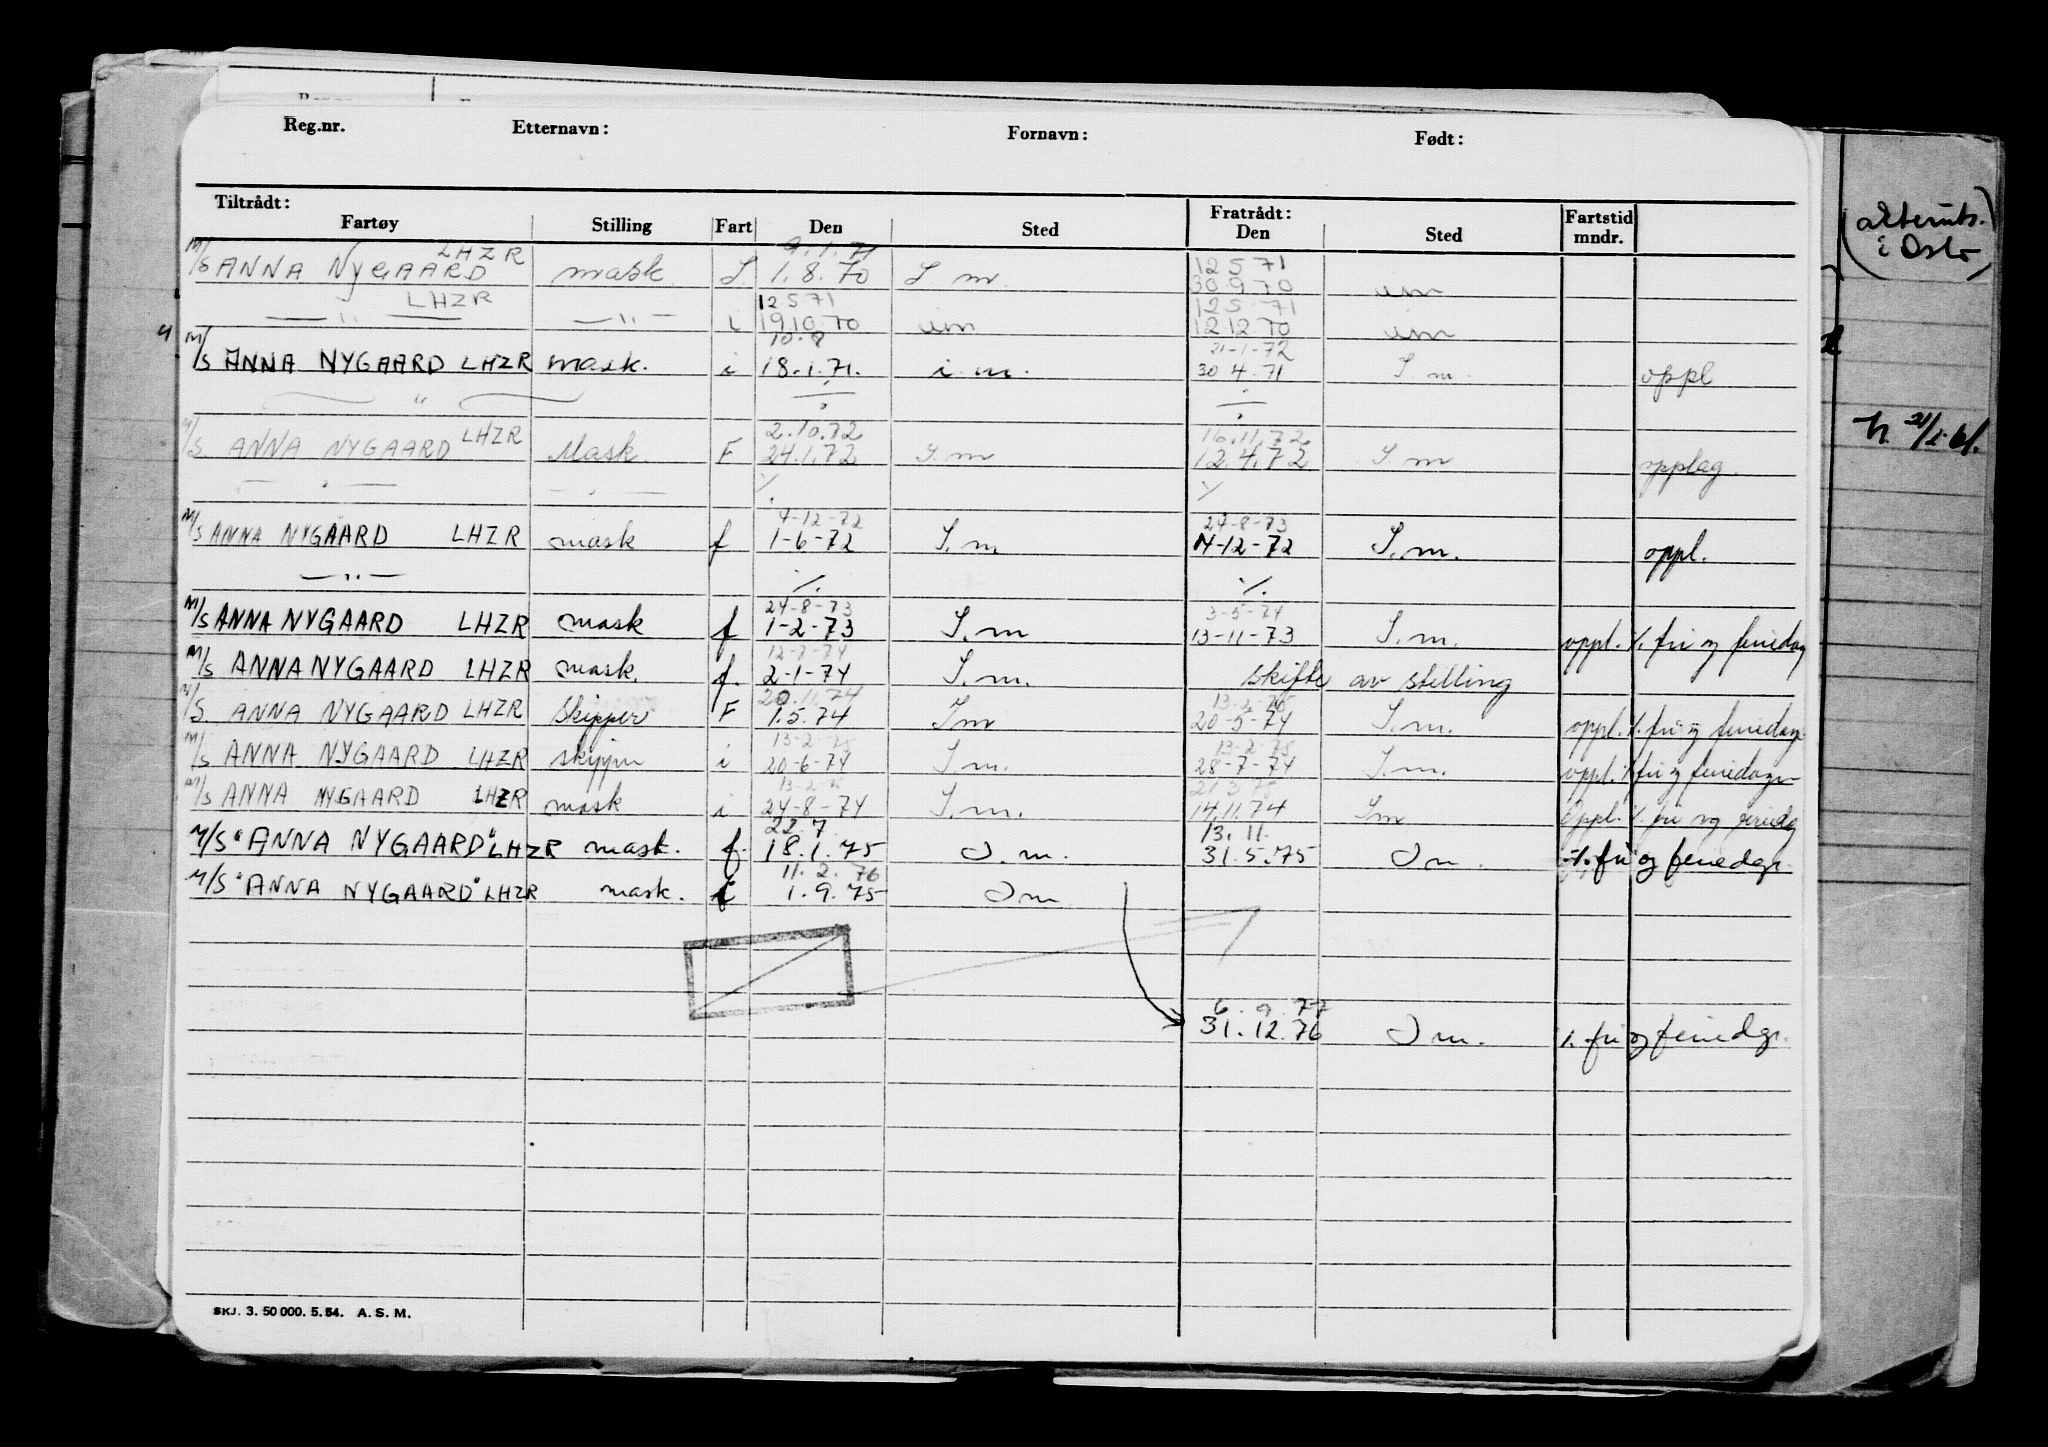 Reg.nr. Etternavn: Fornavn: Født:
Tiltrådt: Fratrådt: Fartstid
Fartøy Stilling Fart Den Sted Den Sted mndr.
LHZR 9.1.71 12 5 71
M/S ANNA NYGAARD mask S. 1.8.70 S m 30 9 70 um
LHZR 12 5 71 12 5 71
— " — — " — i 19 10 70 um 12 12 70 um
10.8 21-1-72
M/S ANNA NYGAARD LHZR mask. i 18.1.71. i.m. 30 4.71 S.m. oppl
" ÷ ÷
LHZR 2.10.72 16.11.72
M/S ANNA NYGAARD Mask F 24.1.72 S.m 12.4.72 S.m opplag.
— " — — " — % %
4-12-72 24-8-73
M/S ANNA NYGAARD LHZR mask f 1-6-72 S.m 4-12-72 S.m. oppl.
— " — % %.
24-8-73 3-5-74
M/S ANNA NYGAARD LHZR mask f 1-2-73 S.m 13-11-73 S.m. oppl. %. fri og feriedag
12-7-74
M/S ANNA NYGAARD LHZR mask. f. 2-1-74 S.m. skifte av stilling
20.11.74 13-2-75
M/S. ANNA NYGAARD LHZR Skipper F 1.5.74 Sm 20-5-74 S.m. oppl. %. fri og feriedag
13-2-75 13-2-75
M/S ANNA NYGAARD LHZR skipper i 20-6-74 S.m. 28-7-74 S.m. oppl. % fri og feriedager
13-2-75 21 3 75
M/S ANNA NYGAARD LHZR mask i 24-8-74 S.m. 14.11.74 Sm Oppl. %. fri og feriedg
22.7. 13.11.
M/S "ANNA NYGAARD" LHZR mask. f. 18.1.75 S.m. 31.5.75 Sm. %. fri og feriedgr.
11.2.76
M/S "ANNA NYGAARD" LHZR mask. f 1.9.75 Sm
6.9.77
31.12.76 Sm. %. fri og feriedgr.
SKJ. 3. 50 000. 5. 54. A. S. M.
i Oslo)